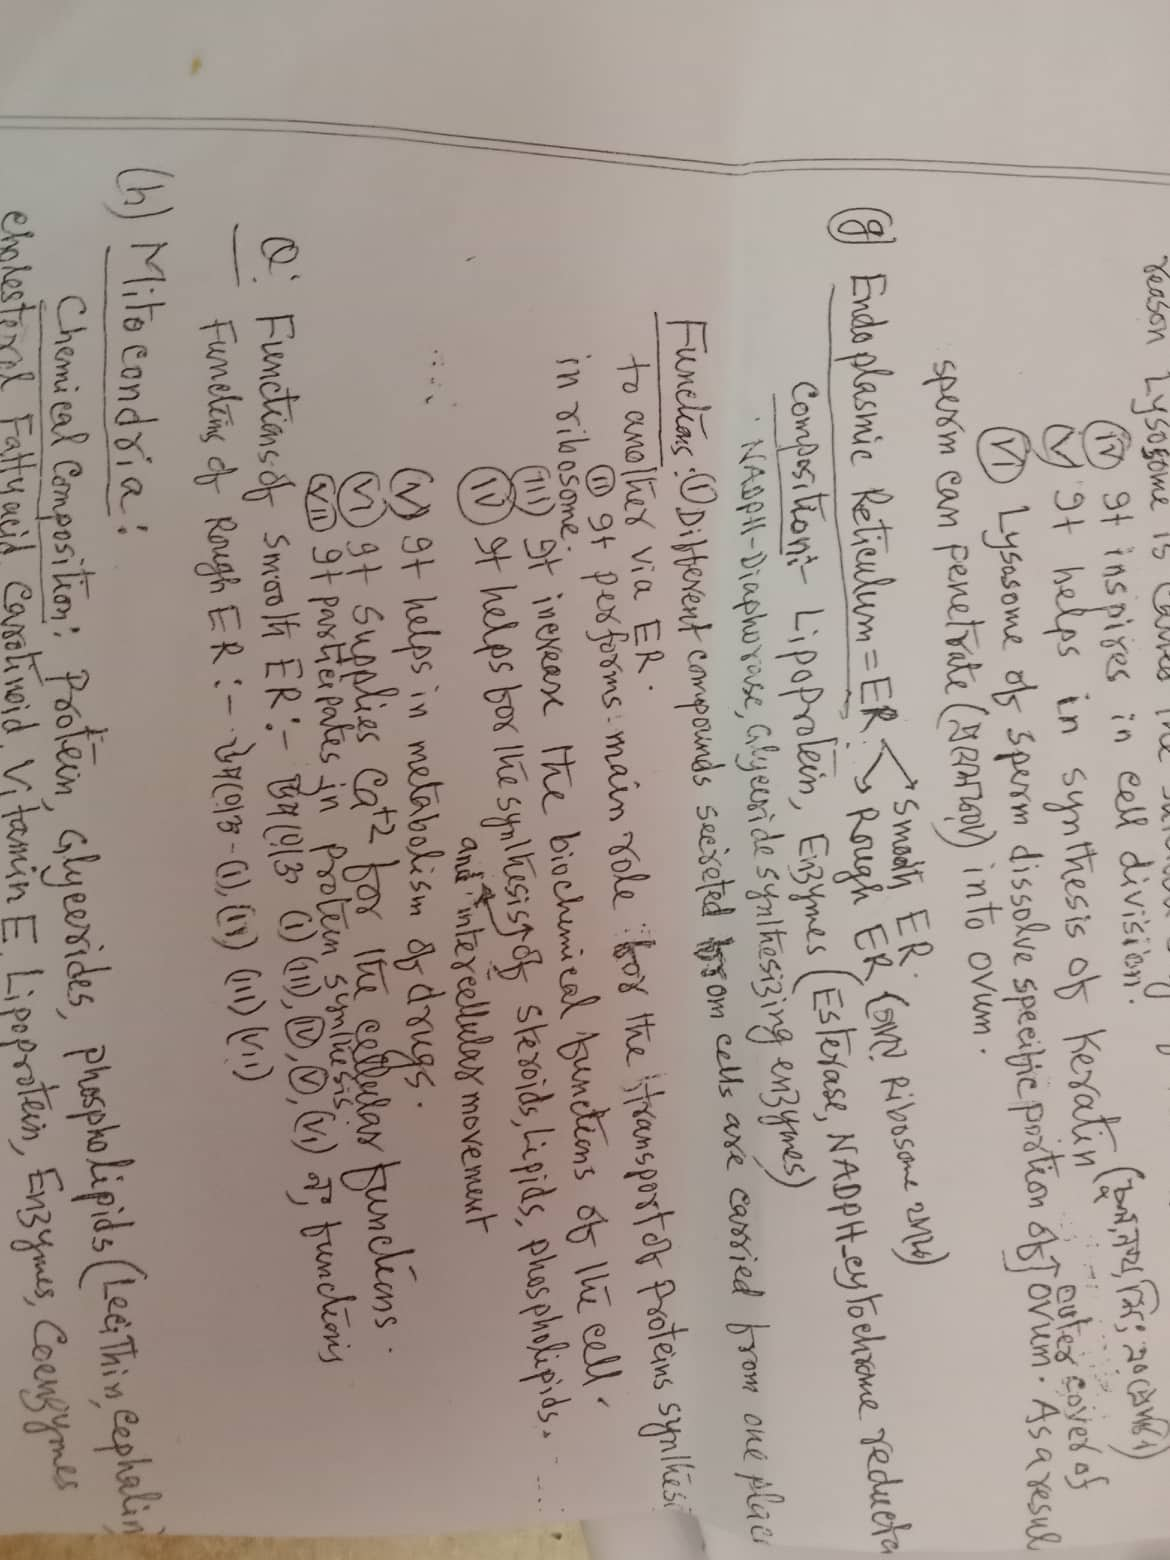 reason Lysosome is called the
(iv) It inspires in cell division.
(v) It helps in synthesis of Keratin
(vi) Lysosome of sperm dissolve specific portion of ↑ outer cover of ovum. As a resul
sperm can penetrate into ovum.
(g) Endoplasmic Reticulum = ER. Smooth ER.
Rough ER Ribosome
Composition:- Lipoprotein, Enzymes (Esterase, NADPH-cytochrome reducta
NADPH-Diaphorase, Glyceride synthesizing enzymes)
Functions: (i) Different compounds secreted from cells are carried from one place
to another via ER.
(ii) It performs main role for the transport of Proteins synthesi
in ribosome.
(iii) It increase the biochemical functions of the cell.
(iv) It helps for the synthesis of steroids, Lipids, phospholipids.
and intercellular movement
(v) It helps in metabolism of drugs.
(vi) It supplies Ca+2 for the cellular functions.
(vii) It participates in protein synthesis
Q: Functions of Smooth ER:- (i) (iii), (iv), (v), (vi) functions
Functions of Rough ER :- (i), (iv) (ii) (vii)
(h) Mitocondria:
Chemical Composition: Protein, Glycerides, phospholipids (Lecithin, cephalin,
cholesterol Fatty acid, Carotinoid, Vitamin E, Lipoprotein, Enzymes, Coenzymes